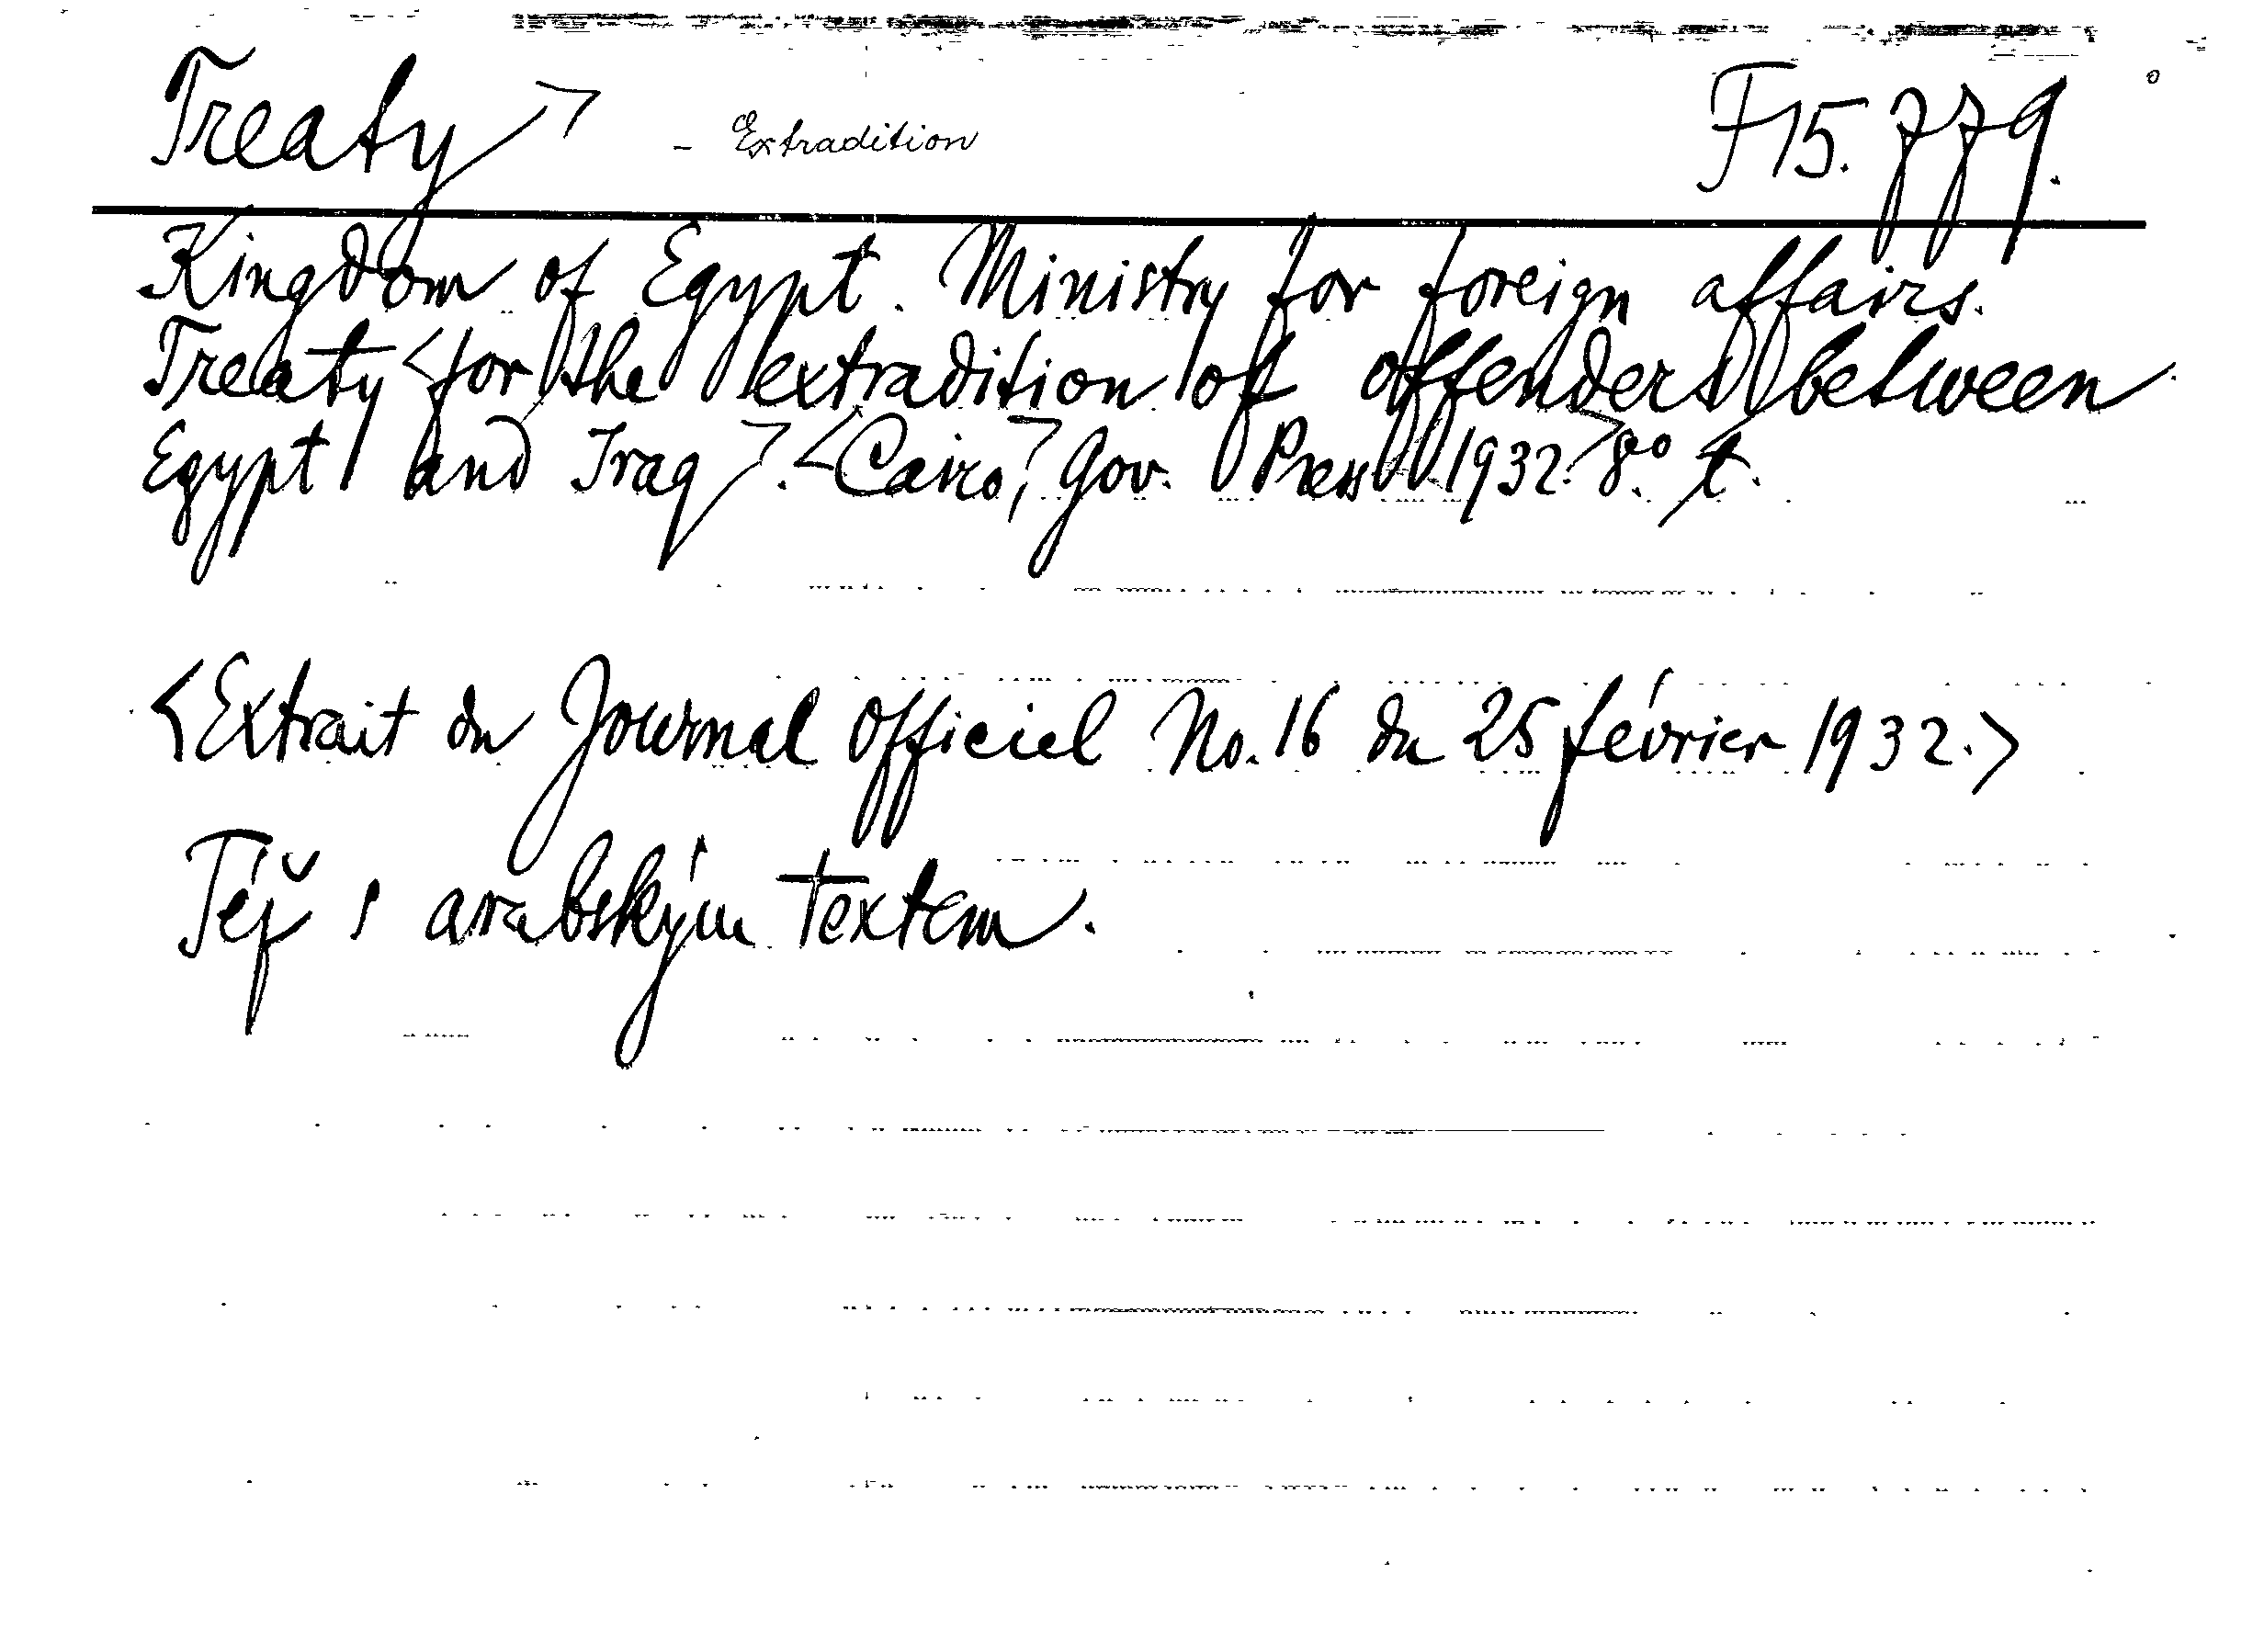 Treaty> - Extradition F 15.779.
Kingdom of Egypt. Ministry for foreign affairs.
Treaty <for the extradition of offenders between
Egypt and Iraq>. <Cairo,> Gov. Press 1932.> 8.° t.
<Extrait du Journal Officiel No. 16 du 25 février 1932.>
Též s arabským textem.